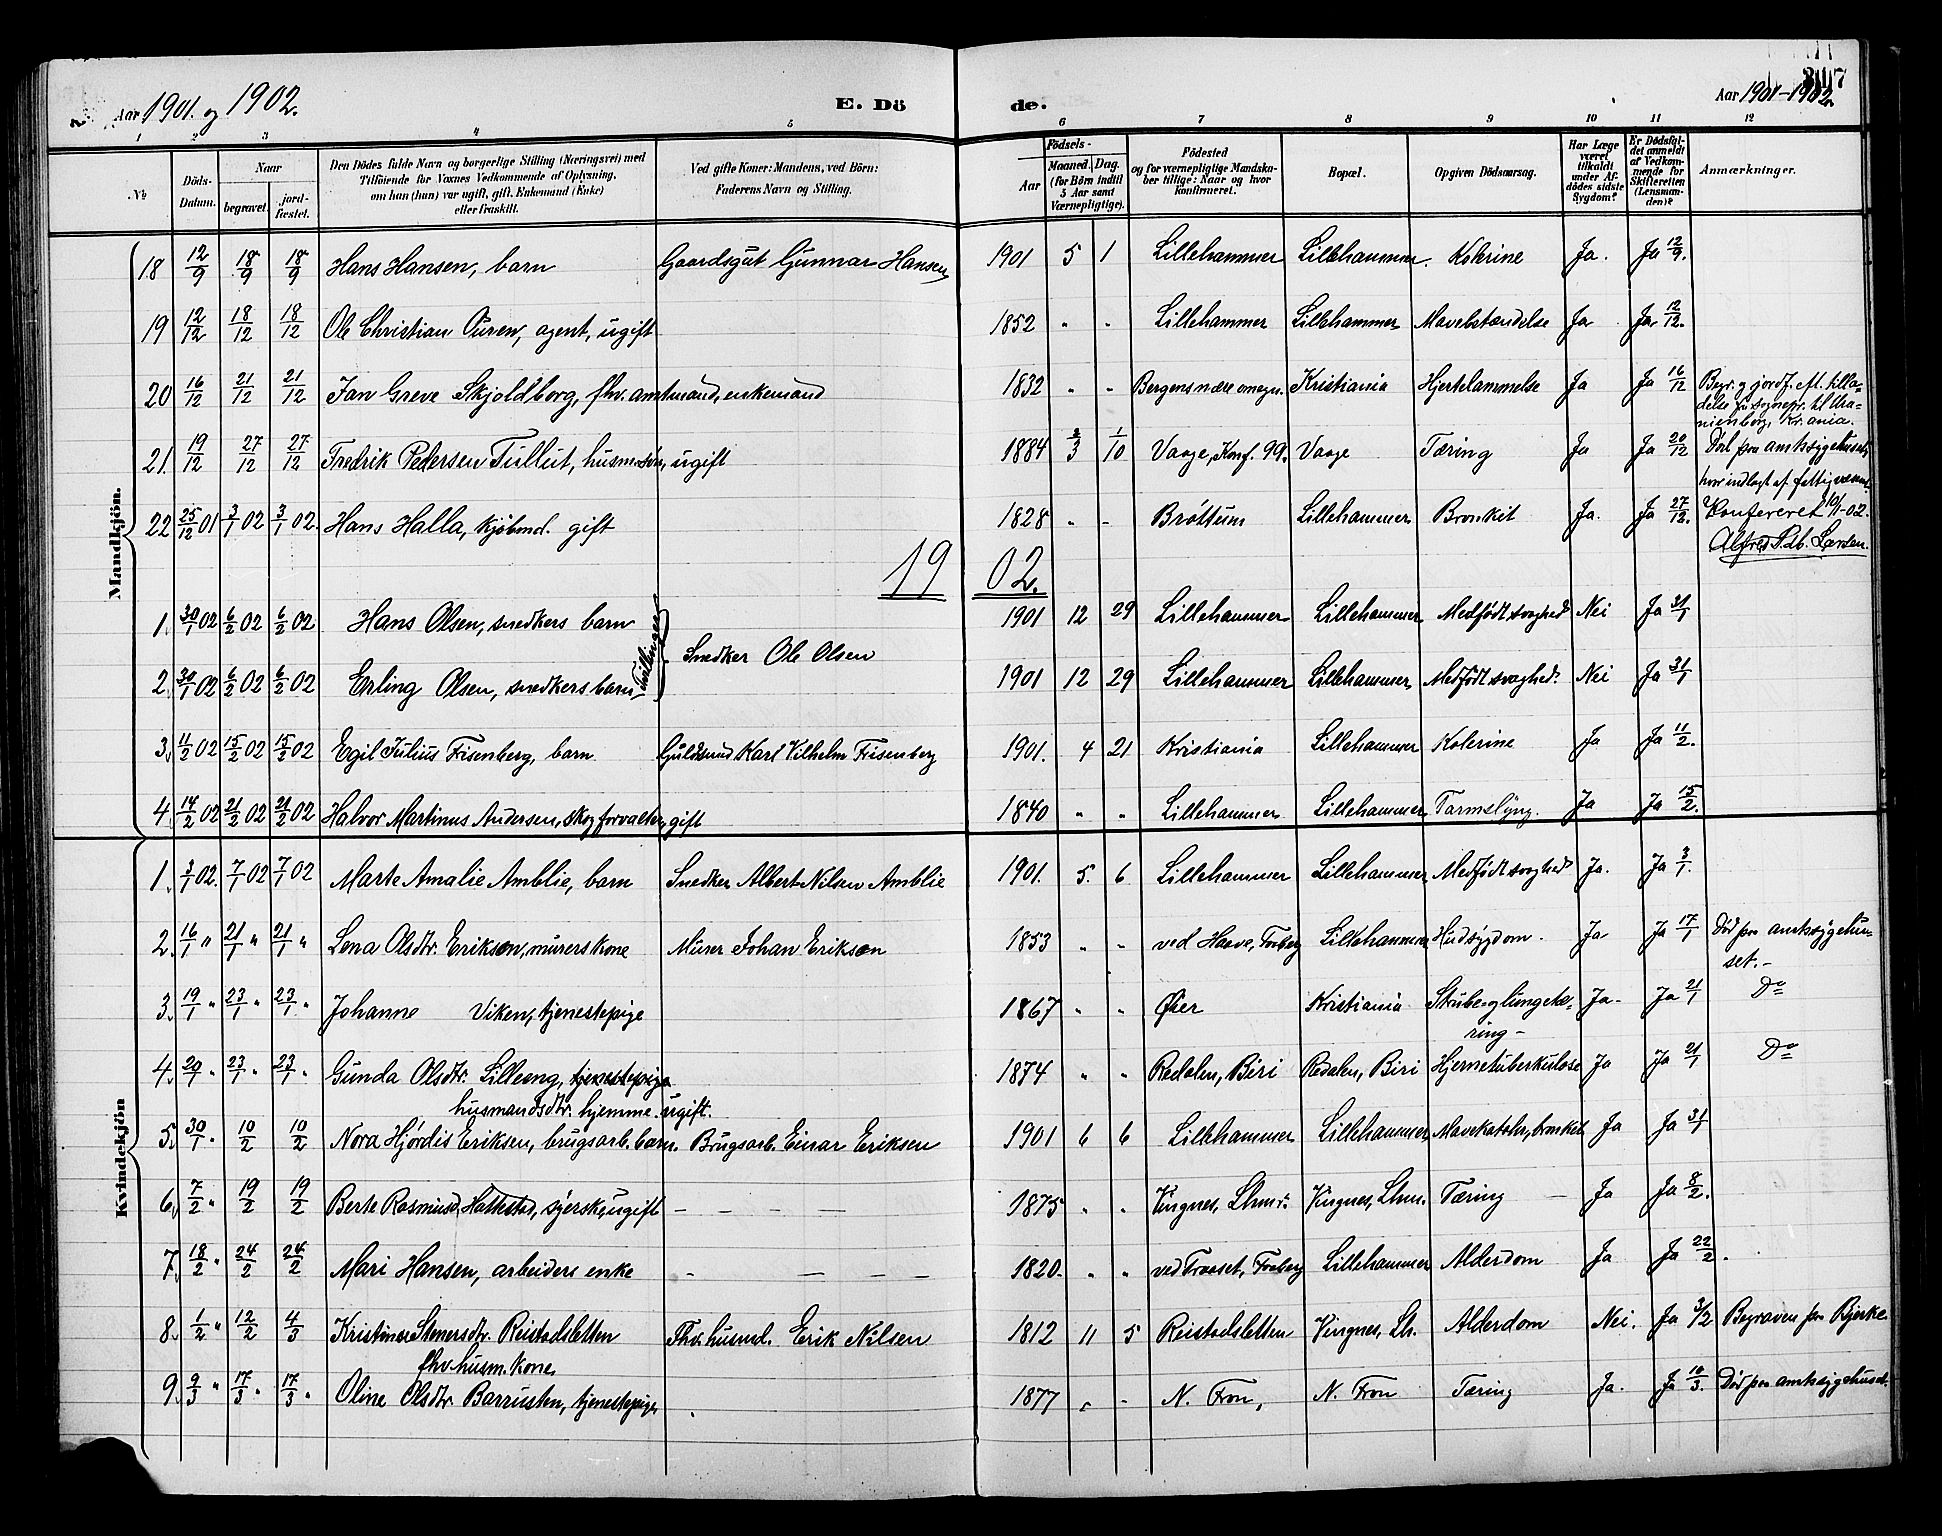 Aar 1901. og 1902. E. Dö de. Aar 1901-1902.
1 2 3 4 5 6 7 8 9 10 11 12
No
Döds-Datum.
Naar
begravet. jordfæstet.
Den Dödes fulde Navn og borgerlige Stilling (Næringsvei) med
Tilföiende for Voxnes Vedkommende af Oplysning,
om han (hun) var ugift, gift, Enkemand (Enke)
eller fraskilt.
Ved gifte Koner: Mandens, ved Börn:
Faderens Navn og Stilling.
Födsels-
Aar Maaned. Dag.
(for Börn indtil
5 Aar samt
Værnepligtige).
Födested
og for værnepligtige Mandska-
ber tillige: Naar og hvor
konfirmeret.
Bopæl.
Opgiven Dödsaarsag.
Har Læge
været
tilkaldt
under Af-
dödes sidste
Sygdom?
Er Dödsfal-
det anmeldt
af Vedkom-
mende for
Skifteretten
(Lensman-
den)?
Anmærkninger.
Mandkjön.
18 12/9 18/9 18/9 Hans Hansen, barn Gaardsgut Gunnar Hansen 1901 5 1 Lillehammer Lillehammer. Kolerine Ja. Ja 12/9.
19 12/12 18/12 18/12 Ole Christian Buren, agent, ugift 1852 " " Lillehammer Lillehammer Mavebetændelse Ja Ja 12/12.
20 16/12 21/12 21/12 Jan Greve Skjoldborg, fhv. amtmand, enkemand 1832 " " Bergens nære omegn. Kristiania Hjertelammelse Ja Ja 16/12 Begr. og jordf. eft. tilla-
delse fra sognepr. til Ura-
nienborg, Kr.ania.
21. 19/12 27/12 27/12 Fredrik Pedersen Tullut, husm.søn, ugift 1884 3 1/10 Vaage, Konf. 99. Vaage Tæring Ja Ja 20/12 Död paa amtssygehuset,
hvor indlagt af fattigvæsenet.
22 25/12 01 3/1 02 3/1 02. Hans Halla, kjöbmd. gift 1828 " " Bröttum Lillehammer Bronkit Ja. Ja 27/12. Konfereret 10/1-02.
Alfred Larsen.
1902.
1. 30/1 02 6/2 02 6/2 02 Hans Olsen, snedkers barn 1901 12 29 Lillehammer Lillehammer Medfödt svaghed Nei Ja 31/1
Tvillinger Snedker Ole Olsen
2. 30/1 02 6/2 02 6/2 02 Erling Olsen, snedkers barn 1901 12 29 Lillehammer Lillehammer Medfödt svaghed. Nei Ja 31/1
3. 11/2 02 15/2 02 15/2 02 Egil Julius Frisenberg, barn Guldsmed Karl Vilhelm Frisenberg 1901. 4 21 Kristiania Lillehammer Kolerine Ja Ja 11/2.
4. 14/2 02 21/2 02 21/2 02 Halvor Martinus Andersen, skogforvalter, gift 1840 " " Lillehammer Lillehammer Tarmslyng. Ja Ja 15/2.
Kvindekjön
1. 3/1 02. 7/1 02 7/1 02 Marte Amalie Amblie, barn Snedker Albert Nilsen Amblie 1901. 5. 6 Lillehammer Lillehammer Medfödt svaghed Ja. Ja 3/1.
2. 16/1 " 21/1 " 21/1 " Lena Olsdtr. Erikson, murers kone Murer Johan Erikson 1853 " " ved Haave, Faaberg Lillehammer Hudsygdom. Ja Ja 17/1 Död paa amtssygehu-
set.-
3. 19/1 " 23/1 " 23/1 " Johanne Viken, tjenestepige 1867 " " Øier Kristiania Strube og lungetæ-
ring - Ja. Ja 21/1 Do
4. 20/1 " 23/1 " 23/1 " Gunda Olsdtr. Lilleeng, tjenestepige
husmandsdtr. hjemme. ugift. 1874 " " Redalen, Biri Redalen, Biri Hjernetuberkulose Ja Ja 21/1 Do
5. 30/1 " 10/2 10/2 Nora Hjördis Eriksen, brugsarb. barn. Brugsarb. Einar Eriksen 1901 6 6 Lillehammer Lillehammer Mavekatarh, bronkit Ja Ja 31/1
6. 7/2 " 19/2 19/2 Berte Rasmusd. Hattestad, syerske, ugift - - - - 1875 " " Vingnes, Lhmr. Vingnes, Lhm. Tæring - Ja Ja 8/2.
7. 18/2 " 24/2 24/2 Mari Hansen, arbeiders enke - - - - 1820. " " ved Traaset, Faaberg Lillehammer Alderdom Ja Ja 22/2.
8. 1/2 " 12/2 4/3 Kristine Stenersdtr. Reistadsletten
fhv. husm. kone Fhv. husmd. Erik Nilsen 1812 11 5 Reistadsletten Vingnes, Lh. Alderdom Nei. Ja 3/2 Begraven paa Bjerke
9. 9/3 " 17/3 " 17/3 " Oline Olsdtr Barrusten, tjenestepige 1877 " - N. Fron, N. Fron Tæring Ja. Ja 10/3. Död paa amtssygehuset.